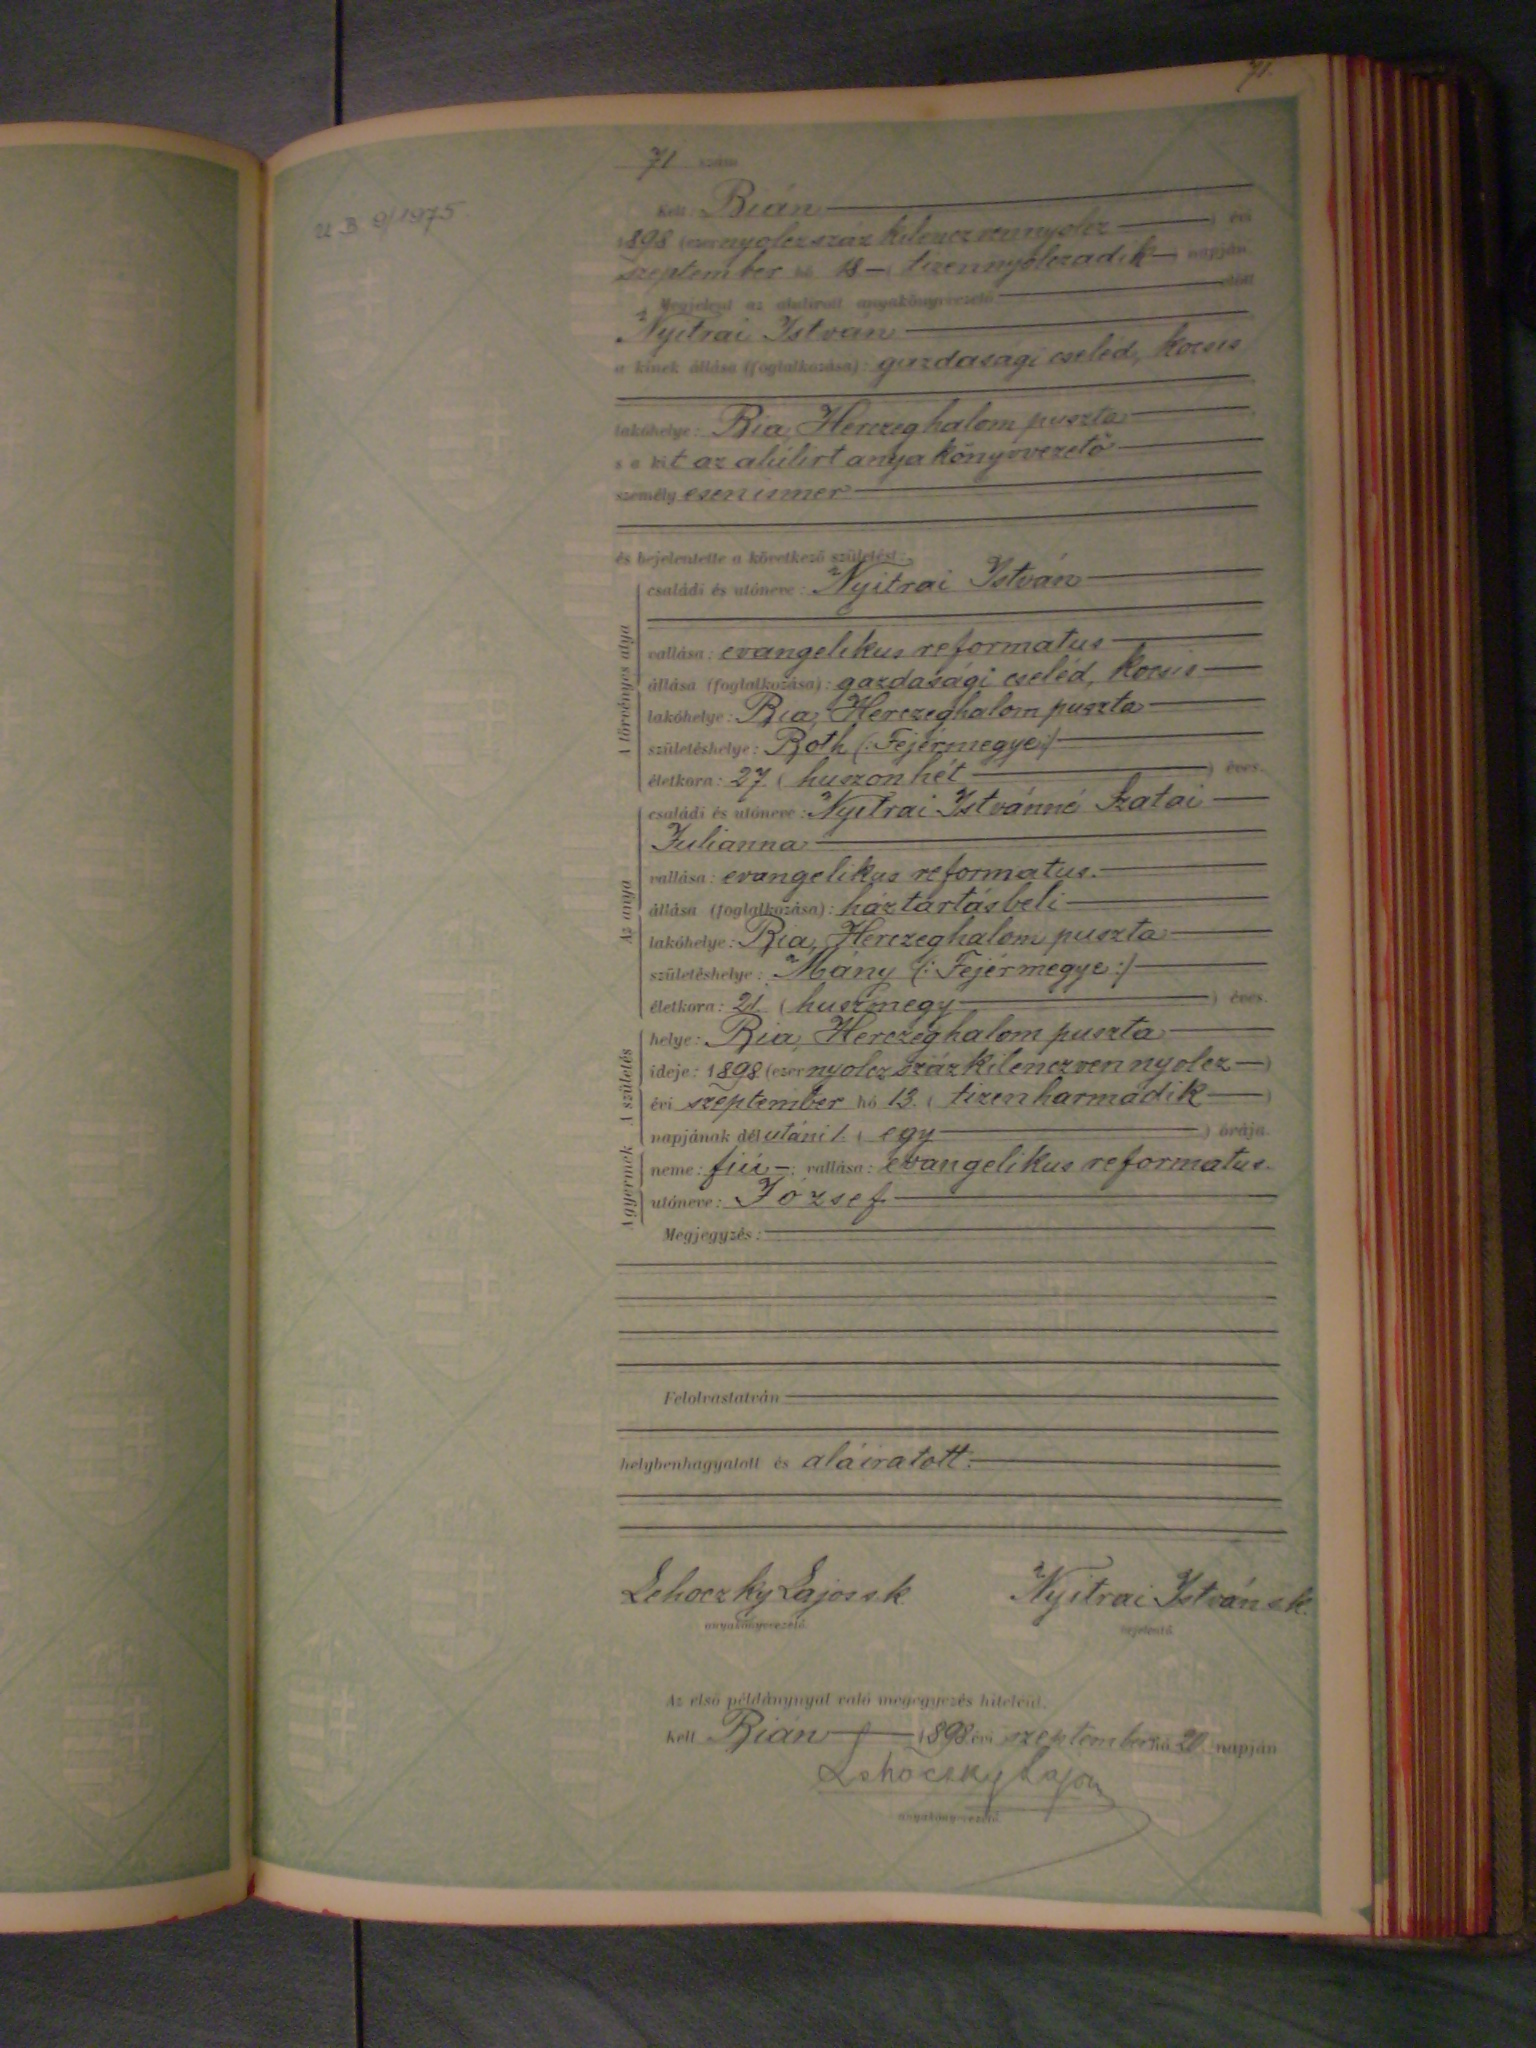 71.
71 szám
U.B. 9/1975
Kelt: Bián
1898 (ezernyolczszáz kilenczvennyolcz) évi
szeptember hó 18 (tizennyolczadik) napján
Megjelent az alulirott anyakönyvvezető előtt
Nyitrai István
a kinek állása (foglalkozása): gazdasági cseléd, kocsis
lakóhelye: Bia, Herczeghalom puszta
s a kit az alúlirt anyakönyvvezető
személyesen ismer
és bejelentette a következő születést:
A törvényes atya
családi és utóneve: Nyitrai István
vallása: evangelikus reformatus
állása (foglalkozása): gazdasági cseléd, kocsis
lakóhelye: Bia, Herczeghalom puszta
születéshelye: Both (: Fejérmegye :)
életkora: 27. (huszonhét) éves.
Az anya
családi és utóneve: Nyitrai Istvánné Szatai
Julianna
vallása: evangelikus reformatus.
állása (foglalkozása): háztartásbeli
lakóhelye: Bia, Herczeghalom puszta
születéshelye: Mány (: Fejérmegye :)
életkora: 21. (huszonegy) éves.
A születés
helye: Bia, Herczeghalom puszta
ideje: 1898 (ezernyolczszázkilenczvennyolcz)
évi szeptember hó 13. (tizenharmadik)
napjának délutáni 1. (egy) órája.
A gyermek
neme: fiú; vallása: evangelikus reformatus.
utóneve: József
Megjegyzés:
Felolvastatván
helybenhagyatott és aláiratott.
Lehoczky Lajos sk Nyitrai István sk.
anyakönyvvezető. bejelentő.
Az első példánynyal való megegyezés hiteléül.
Kelt Bián 1898. évi szeptember hó 20. napján
Lehoczky Lajos
anyakönyvvezető.